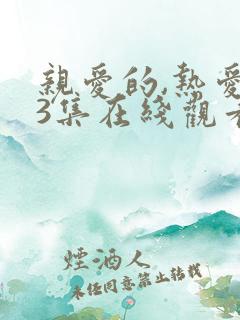 親愛的,熱愛
3集在綫觀看
煙酒人
未經同意禁止轉載